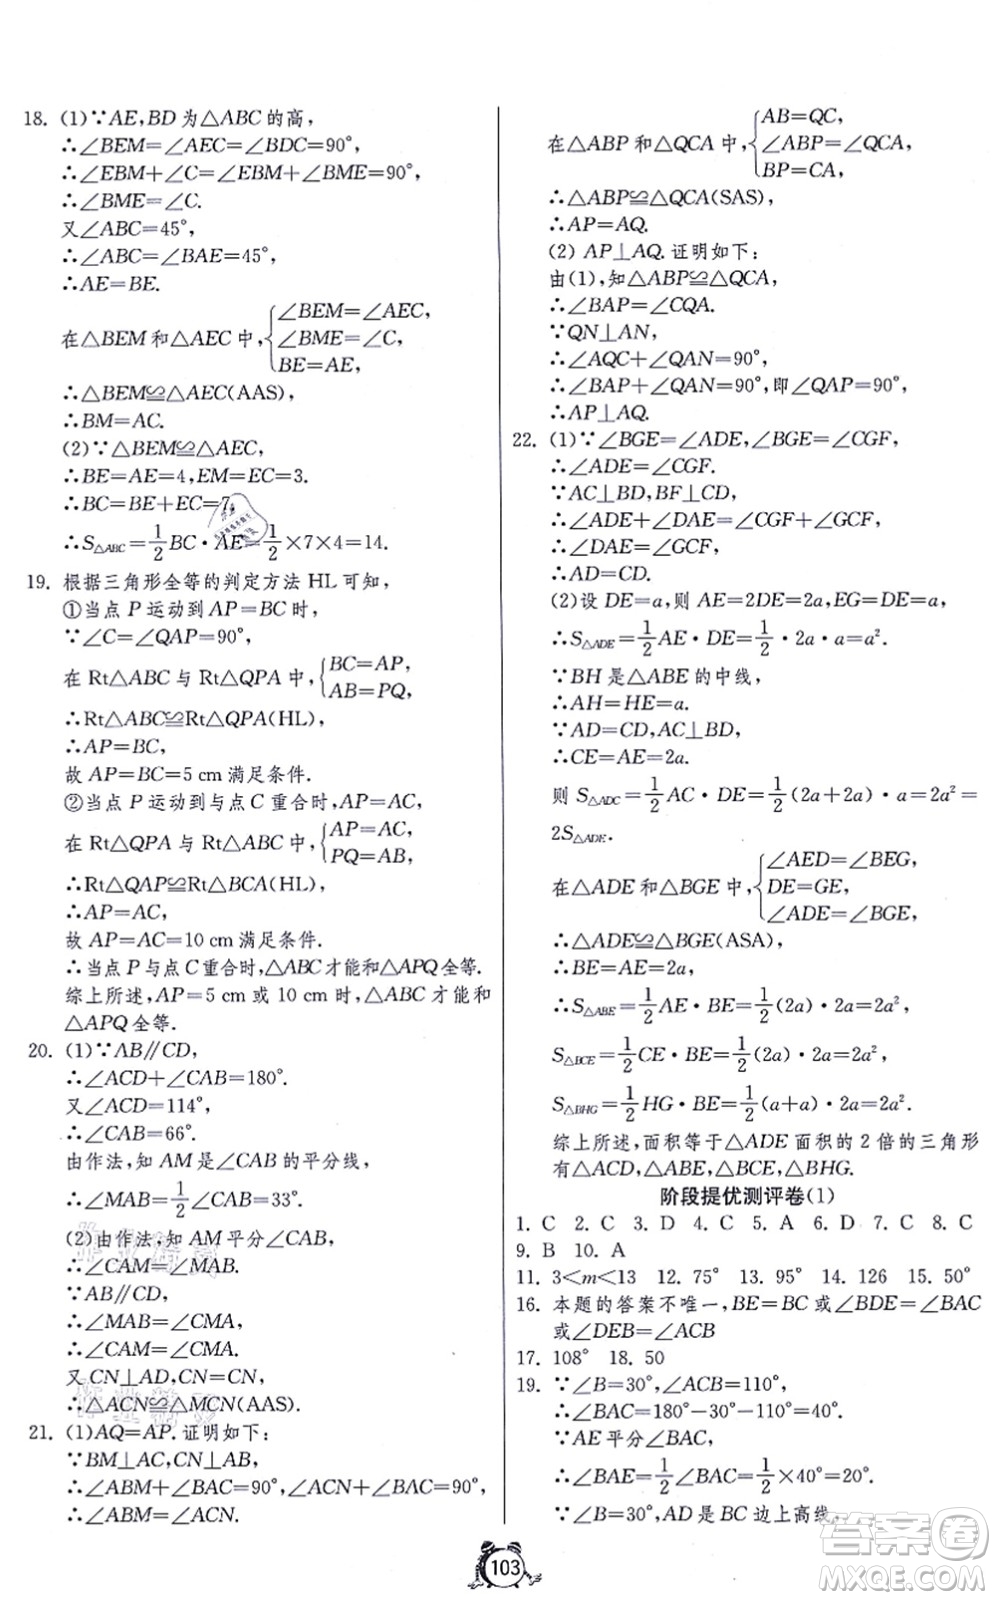 18. (1)∵AE,BD 为△ABC 的高,
∴∠BEM=∠AEC=∠BDC=90°,
∴∠EBM+∠C=∠EBM+∠BME=90°,
∴∠BME=∠C.
又∠ABC=45°,
∴∠ABC=∠BAE=45°,
∴AE=BE.
在△BEM 和△AEC 中,{∠BEM=∠AEC,
∠BME=∠C,
BE=AE,
∴△BEM≌△AEC(AAS),
∴BM=AC.
(2)∵△BEM≌△AEC,
∴BE=AE=4,EM=EC=3.
∴BC=BE+EC=7,
∴S△ABC=1/2BC·AE=1/2×7×4=14.
19. 根据三角形全等的判定方法 HL 可知,
①当点 P 运动到 AP=BC 时,
∵∠C=∠QAP=90°,
在 Rt△ABC 与 Rt△QPA 中,{BC=AP,
AB=PQ,
∴Rt△ABC≌Rt△QPA(HL),
∴AP=BC,
故 AP=BC=5 cm 满足条件.
②当点 P 运动到与点 C 重合时,AP=AC,
在 Rt△QPA 与 Rt△ABC 中,{AP=AC,
PQ=AB,
∴Rt△QAP≌Rt△BCA(HL),
∴AP=AC,
故 AP=AC=10 cm 满足条件.
∴当点 P 与点 C 重合时,△ABC 才能和△APQ 全等.
综上所述,AP=5 cm 或 10 cm 时,△ABC 才能和
△APQ 全等.
20. (1)∵AB∥CD,
∴∠ACD+∠CAB=180°.
又∠ACD=114°,
∴∠CAB=66°.
由作法,知 AM 是∠CAB 的平分线,
∴∠MAB=1/2∠CAB=33°.
(2)由作法,知 AM 平分∠CAB,
∴∠CAM=∠MAB.
∵AB∥CD,
∴∠MAB=∠CMA,
∴∠CAM=∠CMA.
又 CN⊥AD,CN=CN,
∴△ACN≌△MCN(AAS).
21. (1)AQ=AP. 证明如下:
∵BM⊥AC,CN⊥AB,
∴∠ABM+∠BAC=90°,∠ACN+∠BAC=90°,
∴∠ABM=∠ACN.
在△ABP 和△QCA 中,{AB=QC,
∠ABP=∠QCA,
BP=CA,
∴△ABP≌△QCA(SAS),
∴AP=AQ.
(2) AP⊥AQ. 证明如下:
由(1),知△ABP≌△QCA,
∴∠BAP=∠CQA.
∵QN⊥AN,
∴∠AQC+∠QAN=90°,
∴∠BAP+∠QAN=90°,即∠QAP=90°,
∴AP⊥AQ.
22. (1)∵∠BGE=∠ADE,∠BGE=∠CGF,
∴∠ADE=∠CGF.
∵AC⊥BD,BF⊥CD,
∴∠ADE+∠DAE=∠CGF+∠GCF,
∴∠DAE=∠GCF,
∴AD=CD.
(2)设 DE=a,则 AE=2DE=2a,EG=DE=a,
∴S△ADE=1/2AE·DE=1/2·2a·a=a².
∵BH 是△ABE 的中线,
∴AH=HE=a.
∵AD=CD,AC⊥BD,
∴CE=AE=2a.
则 S△ADC=1/2AC·DE=1/2(2a+2a)·a=2a²=
2S△ADE.
在△ADE 和△BGE 中,{∠AED=∠BEG,
DE=GE,
∠ADE=∠BGE,
∴△ADE≌△BGE(ASA),
∴BE=AE=2a,
∴S△ABE=1/2AE·BE=1/2(2a)·2a=2a²,
S△BCE=1/2CE·BE=1/2(2a)·2a=2a²,
S△BHG=1/2HG·BE=1/2(a+a)·2a=2a².
综上所述,面积等于△ADE 面积的 2 倍的三角形
有△ACD,△ABE,△BCE,△BHG.
阶段提优测评卷(1)
1. C 2. C 3. D 4. C 5. A 6. D 7. C 8. C
9. B 10. A
11. 3<m<13 12. 75° 13. 95° 14. 126 15. 50°
16. 本题的答案不唯一,BE=BC 或∠BDE=∠BAC
或∠DEB=∠ACB
17. 108° 18. 50
19. ∵∠B=30°,∠ACB=110°,
∴∠BAC=180°-30°-110°=40°.
∵AE 平分∠BAC,
∴∠BAE=1/2∠BAC=1/2×40°=20°.
∵∠B=30°,AD 是 BC 边上高线,
103
答案圈
MXQE.COM